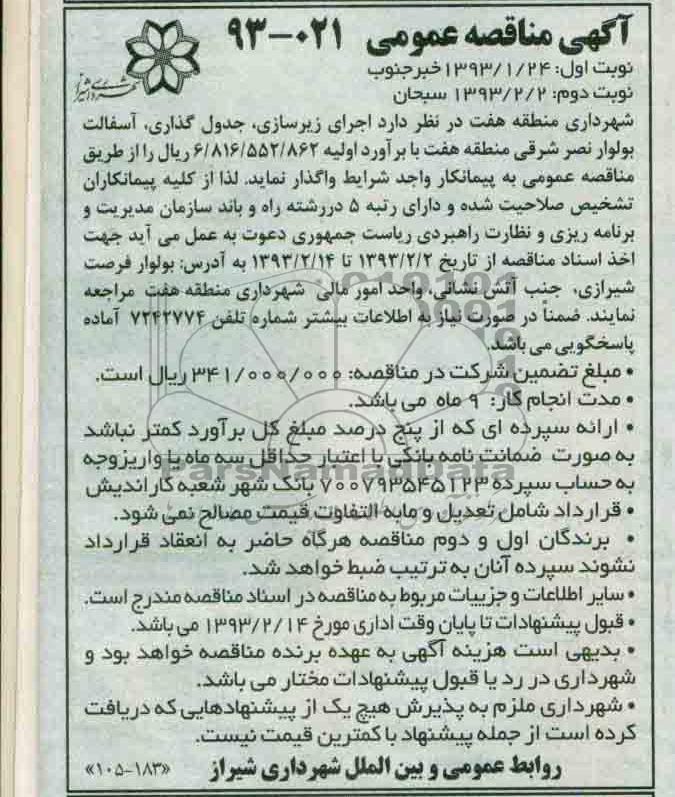 آگهی مناقصه عمومی ۰۲۱-۹۳
شهرداری شیراز
نوبت اول: ۱۳۹۳/۱/۲۴ خبرجنوب
نوبت دوم: ۱۳۹۳/۲/۲ سبحان
شهرداری منطقه هفت در نظر دارد اجرای زیرسازی، جدول گذاری، آسفالت
بولوار نصر شرقی منطقه هفت با برآورد اولیه ۶/۸۱۶/۵۵۲/۸۶۲ ریال را از طریق
مناقصه عمومی به پیمانکار واجد شرایط واگذار نماید. لذا از کلیه پیمانکاران
تشخیص صلاحیت شده و دارای رتبه ۵ دررشته راه و باند سازمان مدیریت و
برنامه ریزی و نظارت راهبردی ریاست جمهوری دعوت به عمل می آید جهت
اخذ اسناد مناقصه از تاریخ ۱۳۹۳/۲/۲ تا ۱۳۹۳/۲/۱۴ به آدرس: بولوار فرصت
شیرازی، جنب آتش نشانی، واحد امور مالی شهرداری منطقه هفت مراجعه
نمایند. ضمناً در صورت نیاز به اطلاعات بیشتر شماره تلفن ۷۲۴۲۷۷۴ آماده
پاسخگویی می باشد.
• مبلغ تضمین شرکت در مناقصه: ۳۴۱/۰۰۰/۰۰۰ ریال است.
• مدت انجام کار: ۹ ماه می باشد.
• ارائه سپرده ای که از پنج درصد مبلغ کل برآورد کمتر نباشد
به صورت ضمانت نامه بانکی با اعتبار حداقل سه ماه یا واریزوجه
به حساب سپرده ۷۰۰۷۹۳۵۴۵۱۲۳ بانک شهر شعبه کاراندیش
• قرارداد شامل تعدیل و مابه التفاوت قیمت مصالح نمی شود.
• برندگان اول و دوم مناقصه هرگاه حاضر به انعقاد قرارداد
نشوند سپرده آنان به ترتیب ضبط خواهد شد.
• سایر اطلاعات و جزییات مربوط به مناقصه در اسناد مناقصه مندرج است.
• قبول پیشنهادات تا پایان وقت اداری مورخ ۱۳۹۳/۲/۱۴ می باشد.
• بدیهی است هزینه آگهی به عهده برنده مناقصه خواهد بود و
شهرداری در رد یا قبول پیشنهادات مختار می باشد.
• شهرداری ملزم به پذیرش هیچ یک از پیشنهادهایی که دریافت
کرده است از جمله پیشنهاد با کمترین قیمت نیست.
روابط عمومی و بین الملل شهرداری شیراز «۱۰۵-۱۸۳»
ParsNamadData